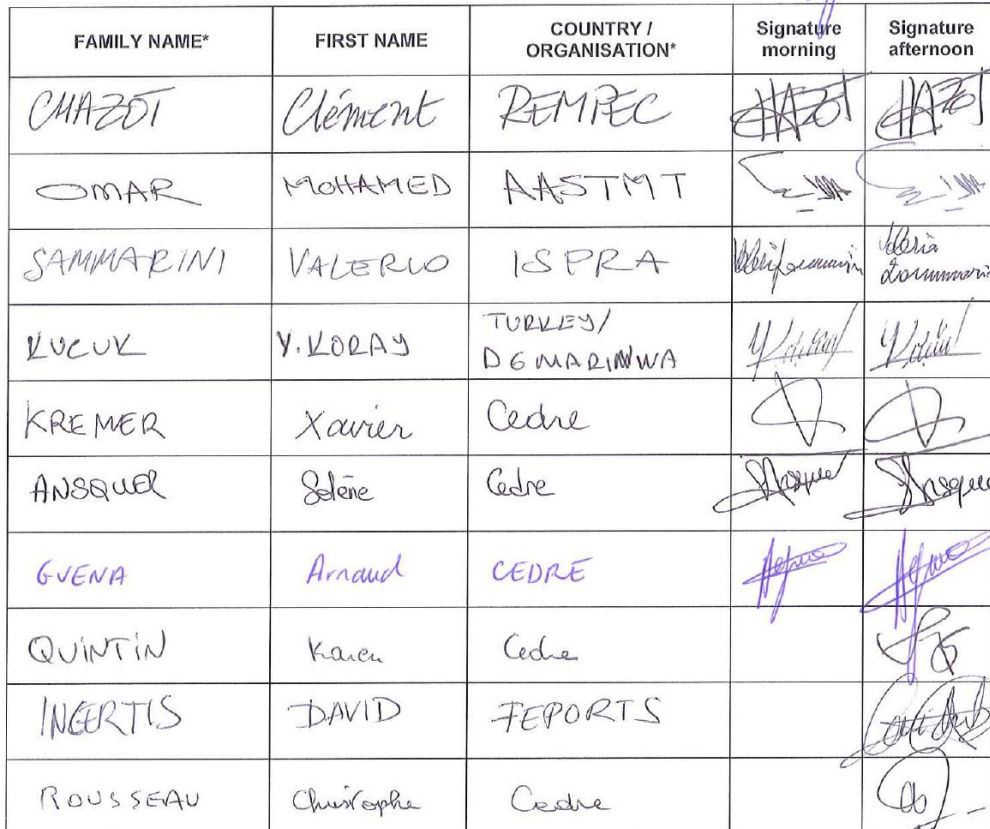 FAMILY NAME* FIRST NAME COUNTRY / ORGANISATION* Signature morning Signature afternoon
CHAZOT Clément REMPEC CHAZOT CHAZOT
OMAR MOHAMED AASTMT
SAMMARINI VALERIO ISPRA
KUCUK Y. KORAY TURKEY/
DGMARINWA
KREMER Xavier Cedre
ANSQUER Solène Cedre
GUENA Arnaud CEDRE
QUINTIN Karen Cedre
INGERTIS DAVID FEPORTS
ROUSSEAU Christophe Cedre